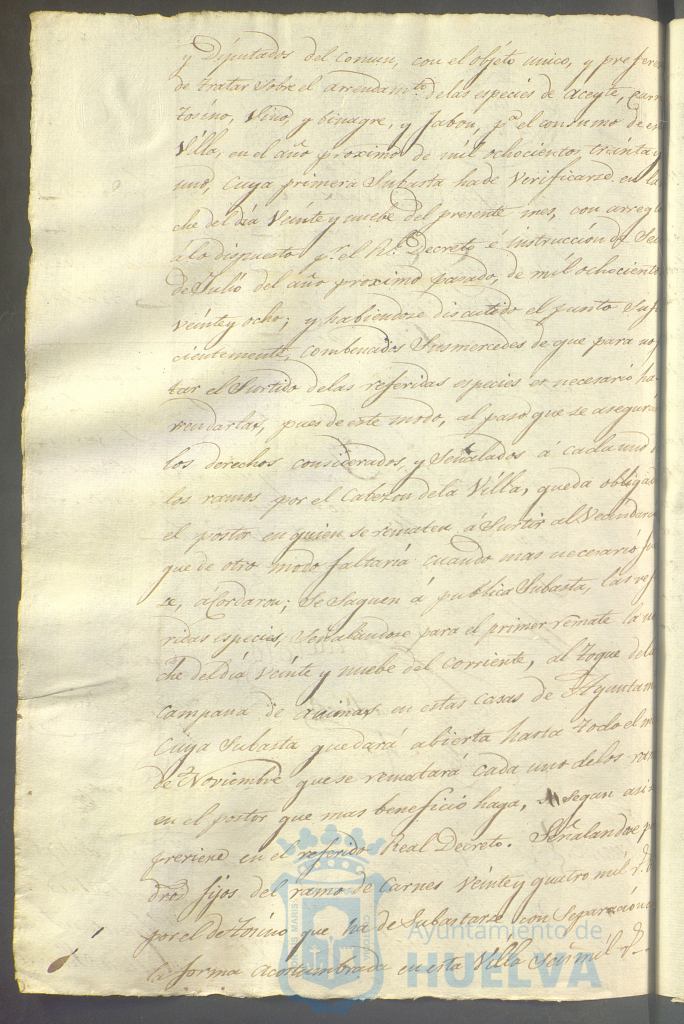 y Diputados del comun, con el objeto unico, y prefere
de tratar sobre el arrendam.to de las especies de Aceyte, carn
tosino, Vino, y binagre, y Jabon, p.a el consumo de es
Villa, en el año proximo de mil ochocientos trainta y
uno, cuya primera Subasta ha de Verificarse en la
che del dia Veinte y nuebe del presente mes, con arregl
à lo dispuesto p.r el R.l Decreto é instruccion de Sei
de Julio del año proximo pasado, de mil ochociento
veinte y ocho; y habiendose discutido el punto Sufi
cientemente, combenidos Susmercedes de que para no f
tar el Surtido de las referidas especies es necesario ha
rendarlas, pues de este modo, al paso que se asegura
los derechos considerados, y señalados á cada uno
los ramos por el Cabezon de la Villa, queda obligad
el postor en quien se rematen á Surtir al Vecindar
que de otro modo faltaria cuando mas necesario
se, acordaron; Se Saquen á publica Subasta, las refe
ridas especies, señalandose para el primer remate la no
che del dia veinte y nuebe del corriente, al toque de la
campana de animas en estas Casas de Ayuntam
Cuya Subasta quedará abierta hasta todo el m
de Noviembre que se rematará cada uno de los ra
en el postor que mas beneficio haga, segun asi
previene en el referido Real Decreto. Señalandose p
dros fijos del ramo de Carnes veinte y quatro mil r.s
por el de tosino que ha de Subastarse con separacion
la forma acostumbrada en esta Villa Seis mil r.s
Ayuntamiento de
HUELVA